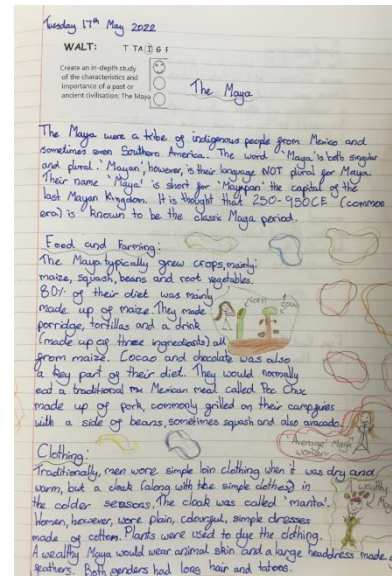 Tuesday 17th May 2022
WALT: T TA I G F
Create an in-depth study
of the characteristics and
importance of a past or
ancient civilisation: The Maya
The Maya
The Maya were a tribe of indigenous people from Mexico and
sometimes even Southern America. The word 'Maya' is both singular
and plural. 'Mayan', however, is their language NOT plural for Maya.
Their name 'Maya' is short for 'Mayapan' the capital of the
last Mayan Kingdom. It is thought that 250-950CE (common
era) is known to be the classic Maya period.
Food and Farming:
The Maya typically grew crops, mainly:
maize, squash, beans and root vegetables.
80% of their diet was mainly
made up of maize. They made
porridge, tortillas and a drink
(made up of three ingredients) all
from maize. Cocao and chocolate was also
a key part of their diet. They would normally
eat a traditional Mexican meal called Poc Chuc
made up of pork, commonly grilled on their campfires
with a side of beans, sometimes squash and also avacado.
corn
cocao
Clothing:
"Average" Maya
woman
Traditionally, men wore simple loin clothing when it was dry and
warm, but a cloak (along with the simple clothes) in
the colder seasons. The cloak was called 'manta'.
Women, however, wore plain, colourful, simple dresses
made of cotton. Plants were used to dye the clothing.
A wealthy Maya would wear animal skin and a large headdress made
feathers. Both genders had long hair and tatoos.
A wealthy